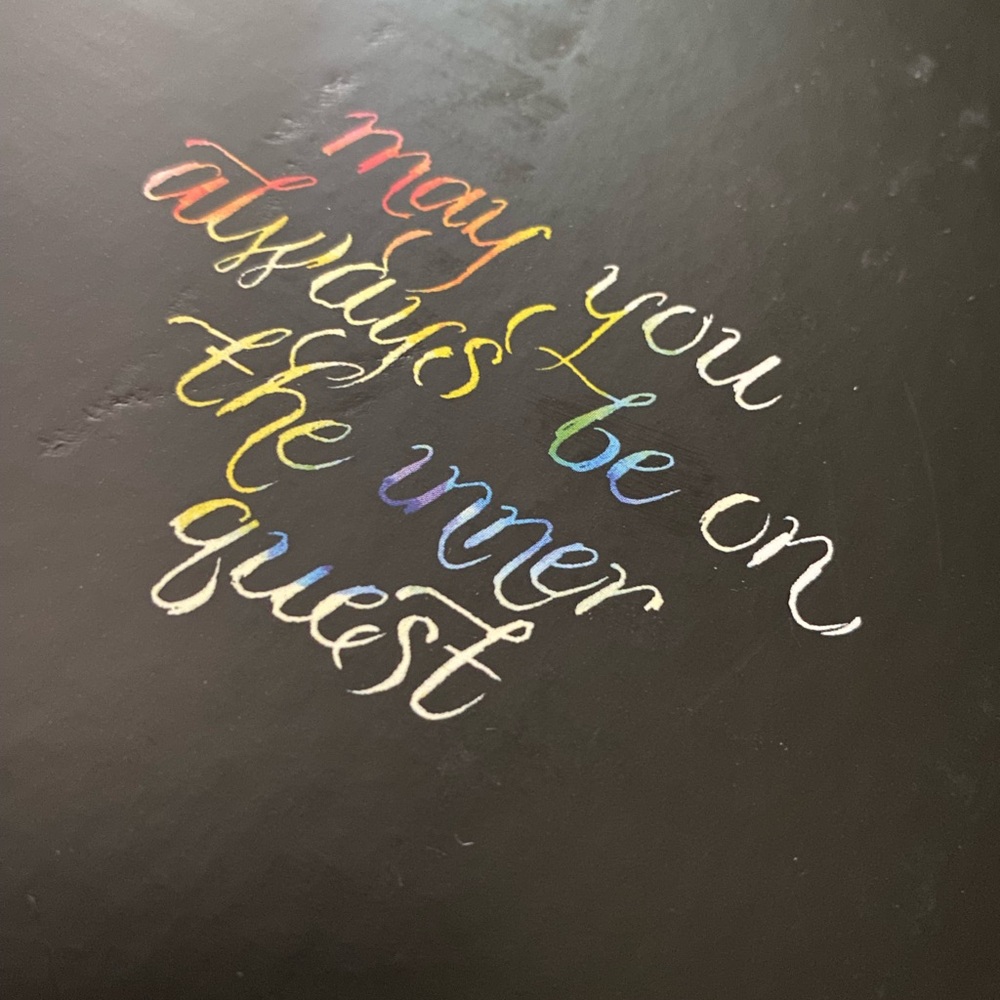 may you
always be on
the inner
quest